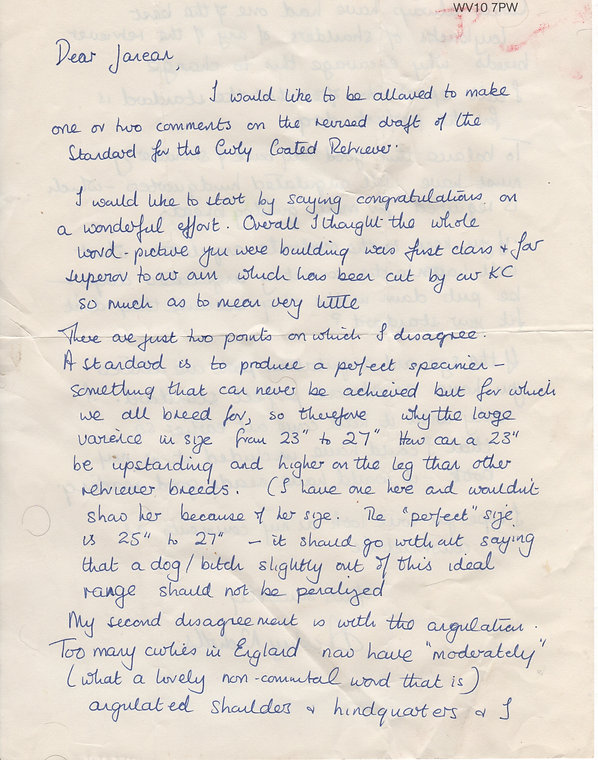 WV10 7PW
Dear Janean,
I would like to be allowed to make
one or two comments on the revised draft of the
Standard for the Curly Coated Retriever.
I would like to start by saying congratulations on
a wonderful effort. Overall I thought the whole
word-picture you were building was first class & far
superor to our own which has been cut by our KC
so much as to mean very little
There are just two points on which I disagree.
A standard is to produce a perfect specimen –
something that can never be achieved but for which
we all breed for, so therefore why the large
varience in size from 23" to 27" How can a 23"
be upstanding and higher on the leg than other
retriever breeds. (I have one here and wouldn't
show her because of her size. The "perfect" size
is 25" to 27" – it should go without saying
that a dog/bitch slightly out of this ideal
range should not be penalized
My second disagreement is with the angulation.
Too many curlies in England now have "moderately"
(what a lovely non-commital word that is)
angulated shoulders & hindquarters & I